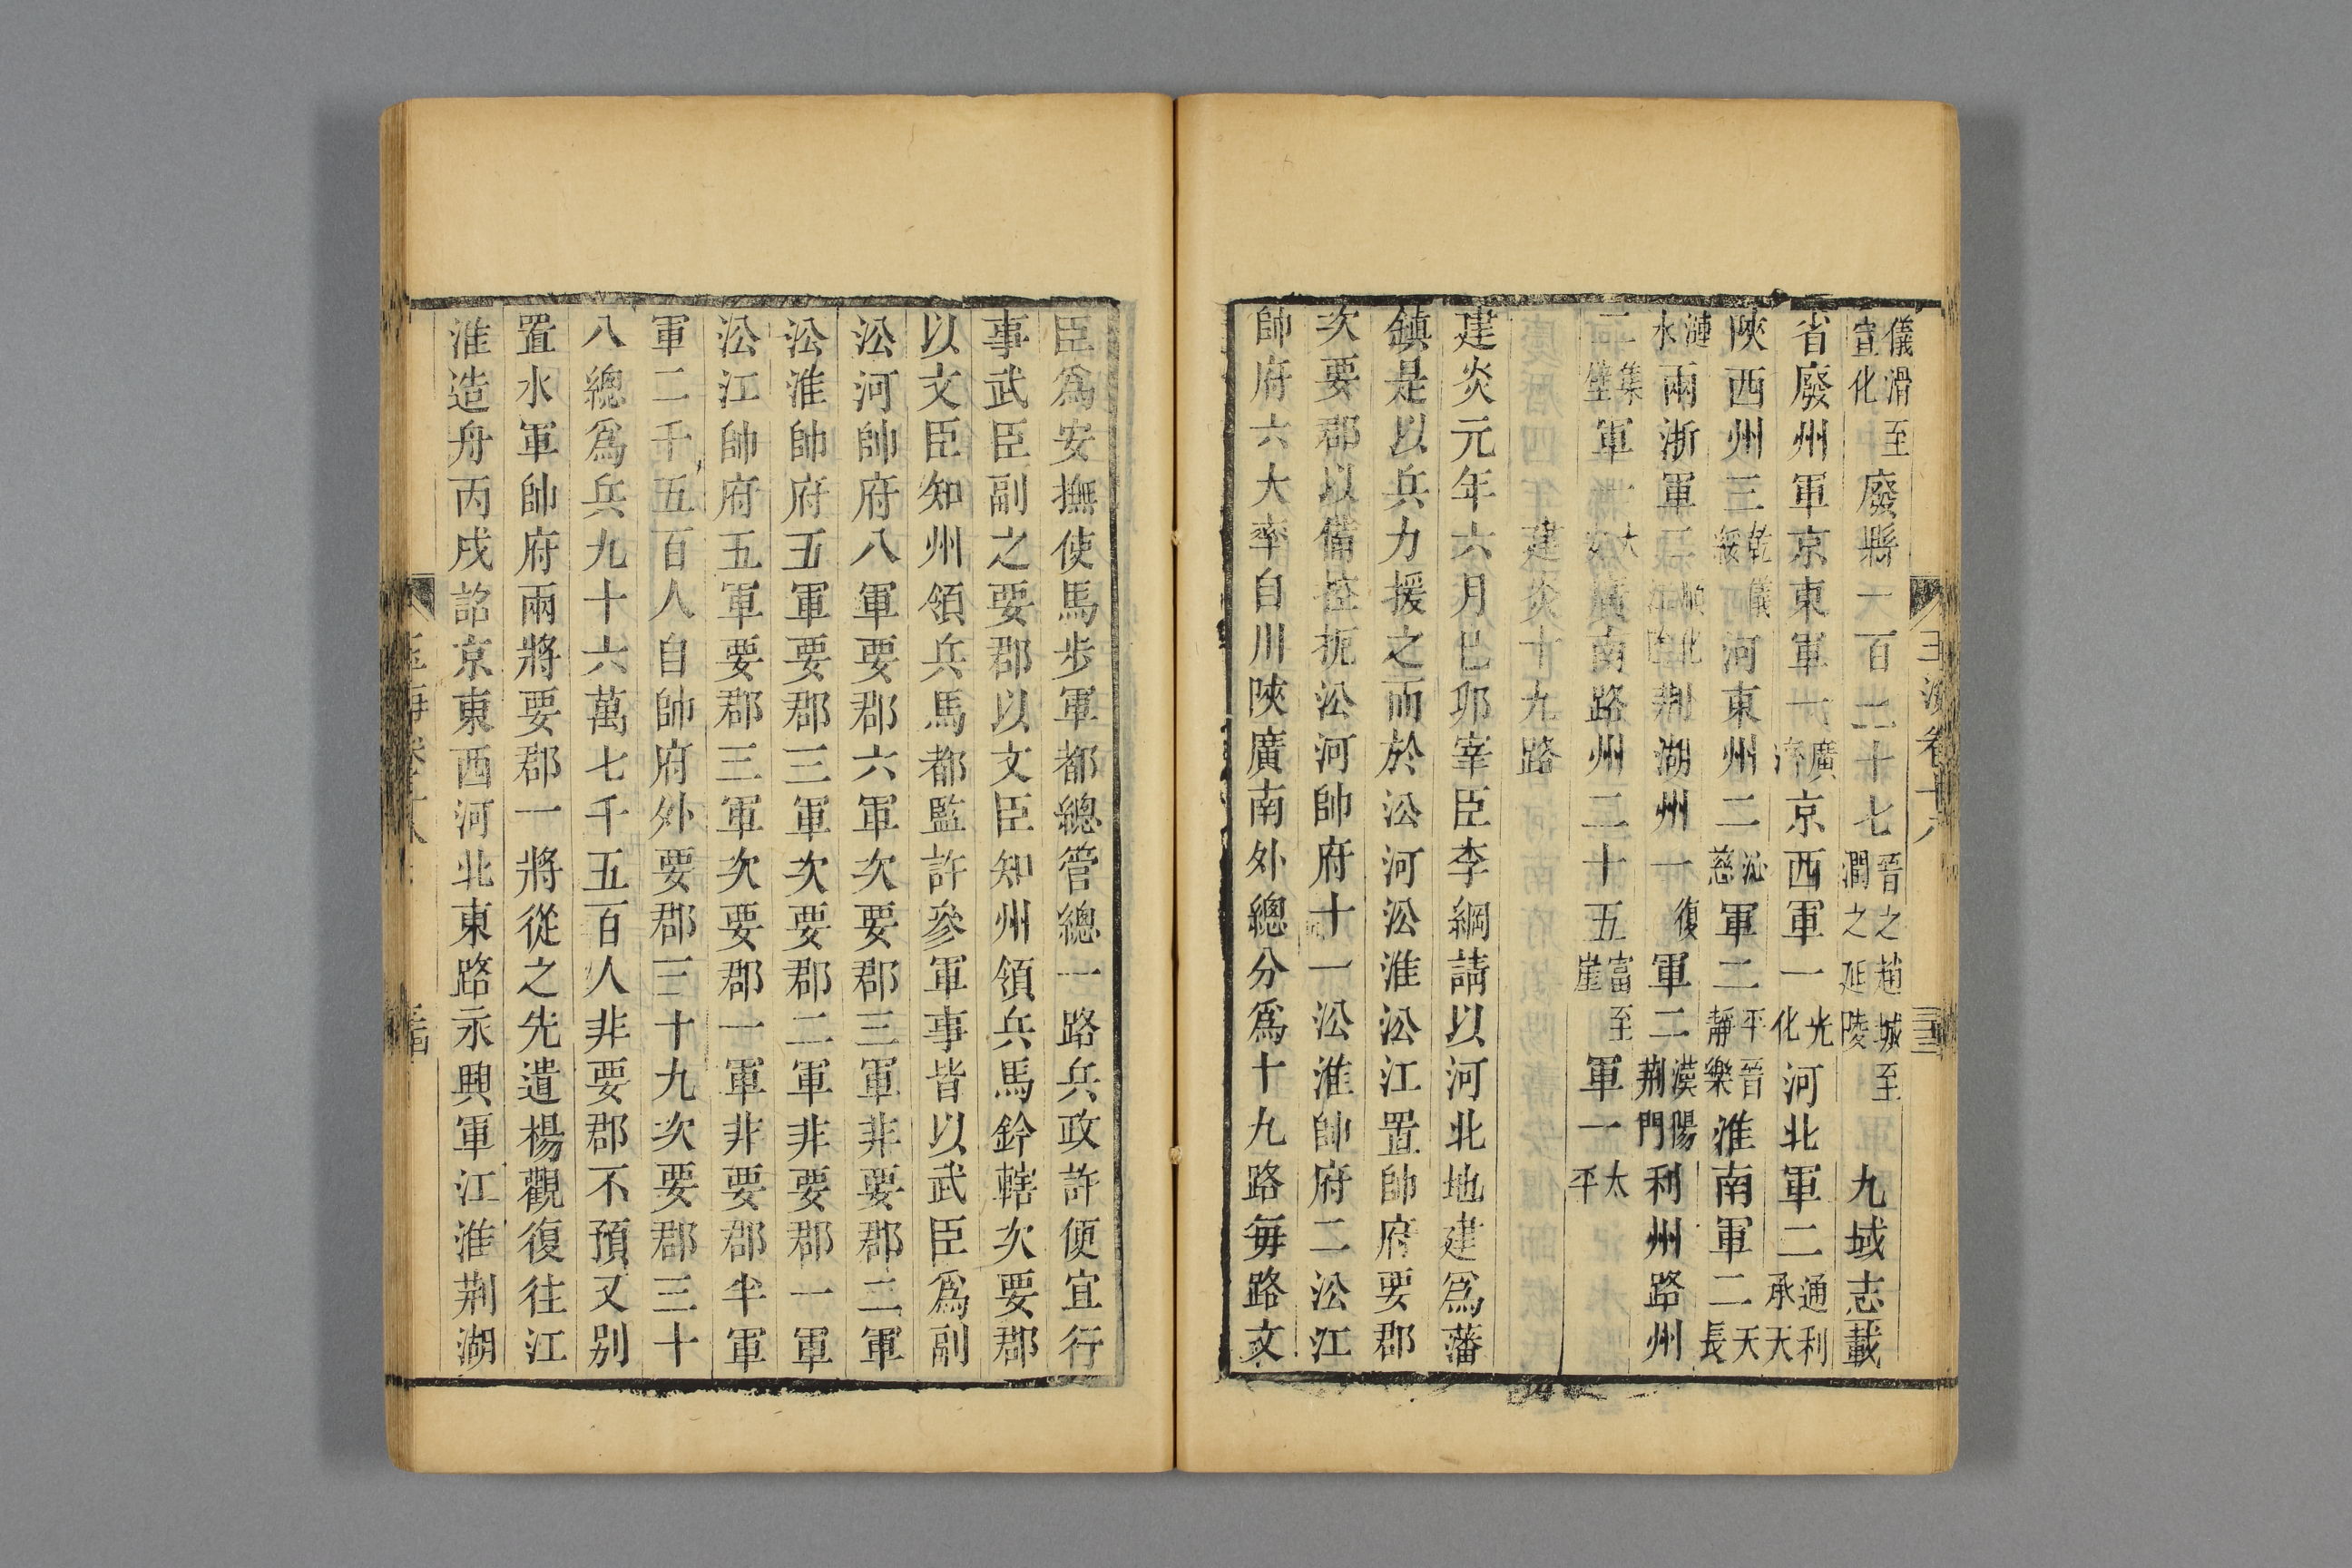 儀滑至宣化廢縣一百二十七晉之趙城至澗之延陵九域志載
省廢州軍京東軍廣濟京西軍一光化河北軍二通利承天
陝西州三乾儀綏河東州二慈軍二平晉靜樂淮南軍二天長
漣水兩浙軍二順化江陰荆湖州一復軍二漢陽荆門利州路州
二集壁軍一大安廣南路州二十五富至崖軍一太平
建炎十九路
建炎元年六月己卯宰臣李綱請以河北地建爲藩
鎮是以兵力援之而於㳂河㳂淮㳂江置帥府要郡
次要郡以備控扼㳂河帥府十一㳂淮帥府二㳂江
帥府六大率自川陝廣南外總分爲十九路每路文
臣爲安撫使馬步軍都總管總一路兵政許便宜行
事武臣副之要郡以文臣知州領兵馬鈐轄次要郡
以文臣知州領兵馬都監許參軍事皆以武臣爲副
㳂河帥府八軍要郡六軍次要郡三軍非要郡二軍
㳂淮帥府五軍要郡三軍次要郡二軍非要郡一軍
㳂江帥府五軍要郡三軍次要郡一軍非要郡半軍
軍二千五百人自帥府外要郡三十九次要郡三十
八總爲兵九十六萬七千五百人非要郡不預又别
置水軍帥府兩將要郡一將從之先遣楊觀復往江
淮造舟丙戌詔京東西河北東路永興軍江淮荆湖